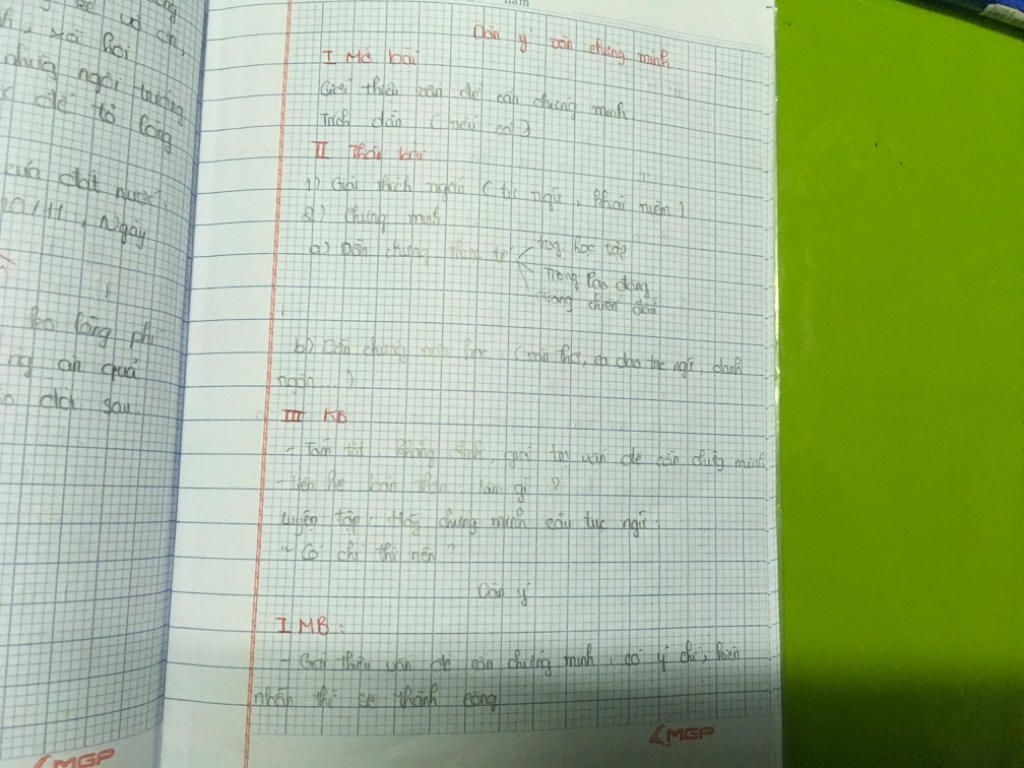 và ch,
, xã hội
những ngôi trường
để tỏ lòng
của đất nước
20/11, Ngày
lãng phí
ăn quả
đời sau.
Dàn ý văn chứng minh
I Mở bài
Giới thiệu vấn đề cần chứng minh
Trích dẫn (nếu có)
II Thân bài
1) Giải thích ngắn (tục ngữ, khái niệm)
2) Chứng minh
a) Dẫn chứng thực tế trong học tập
Trong lao động
Trong chiến đấu
b) Dẫn chứng văn học (văn thơ, ca dao tục ngữ, danh
ngôn...)
III KB
- Tóm tắt, khẳng định, giá trị vấn đề cần chứng minh
- Liên hệ bản thân làm gì?
Luyện tập: Hãy chứng minh câu tục ngữ
"Có chí thì nên"
Dàn ý
I MB:
- Giới thiệu vấn đề cần chứng minh, có ý chí, kiên
nhẫn thì sẽ thành công
MGP
MGP